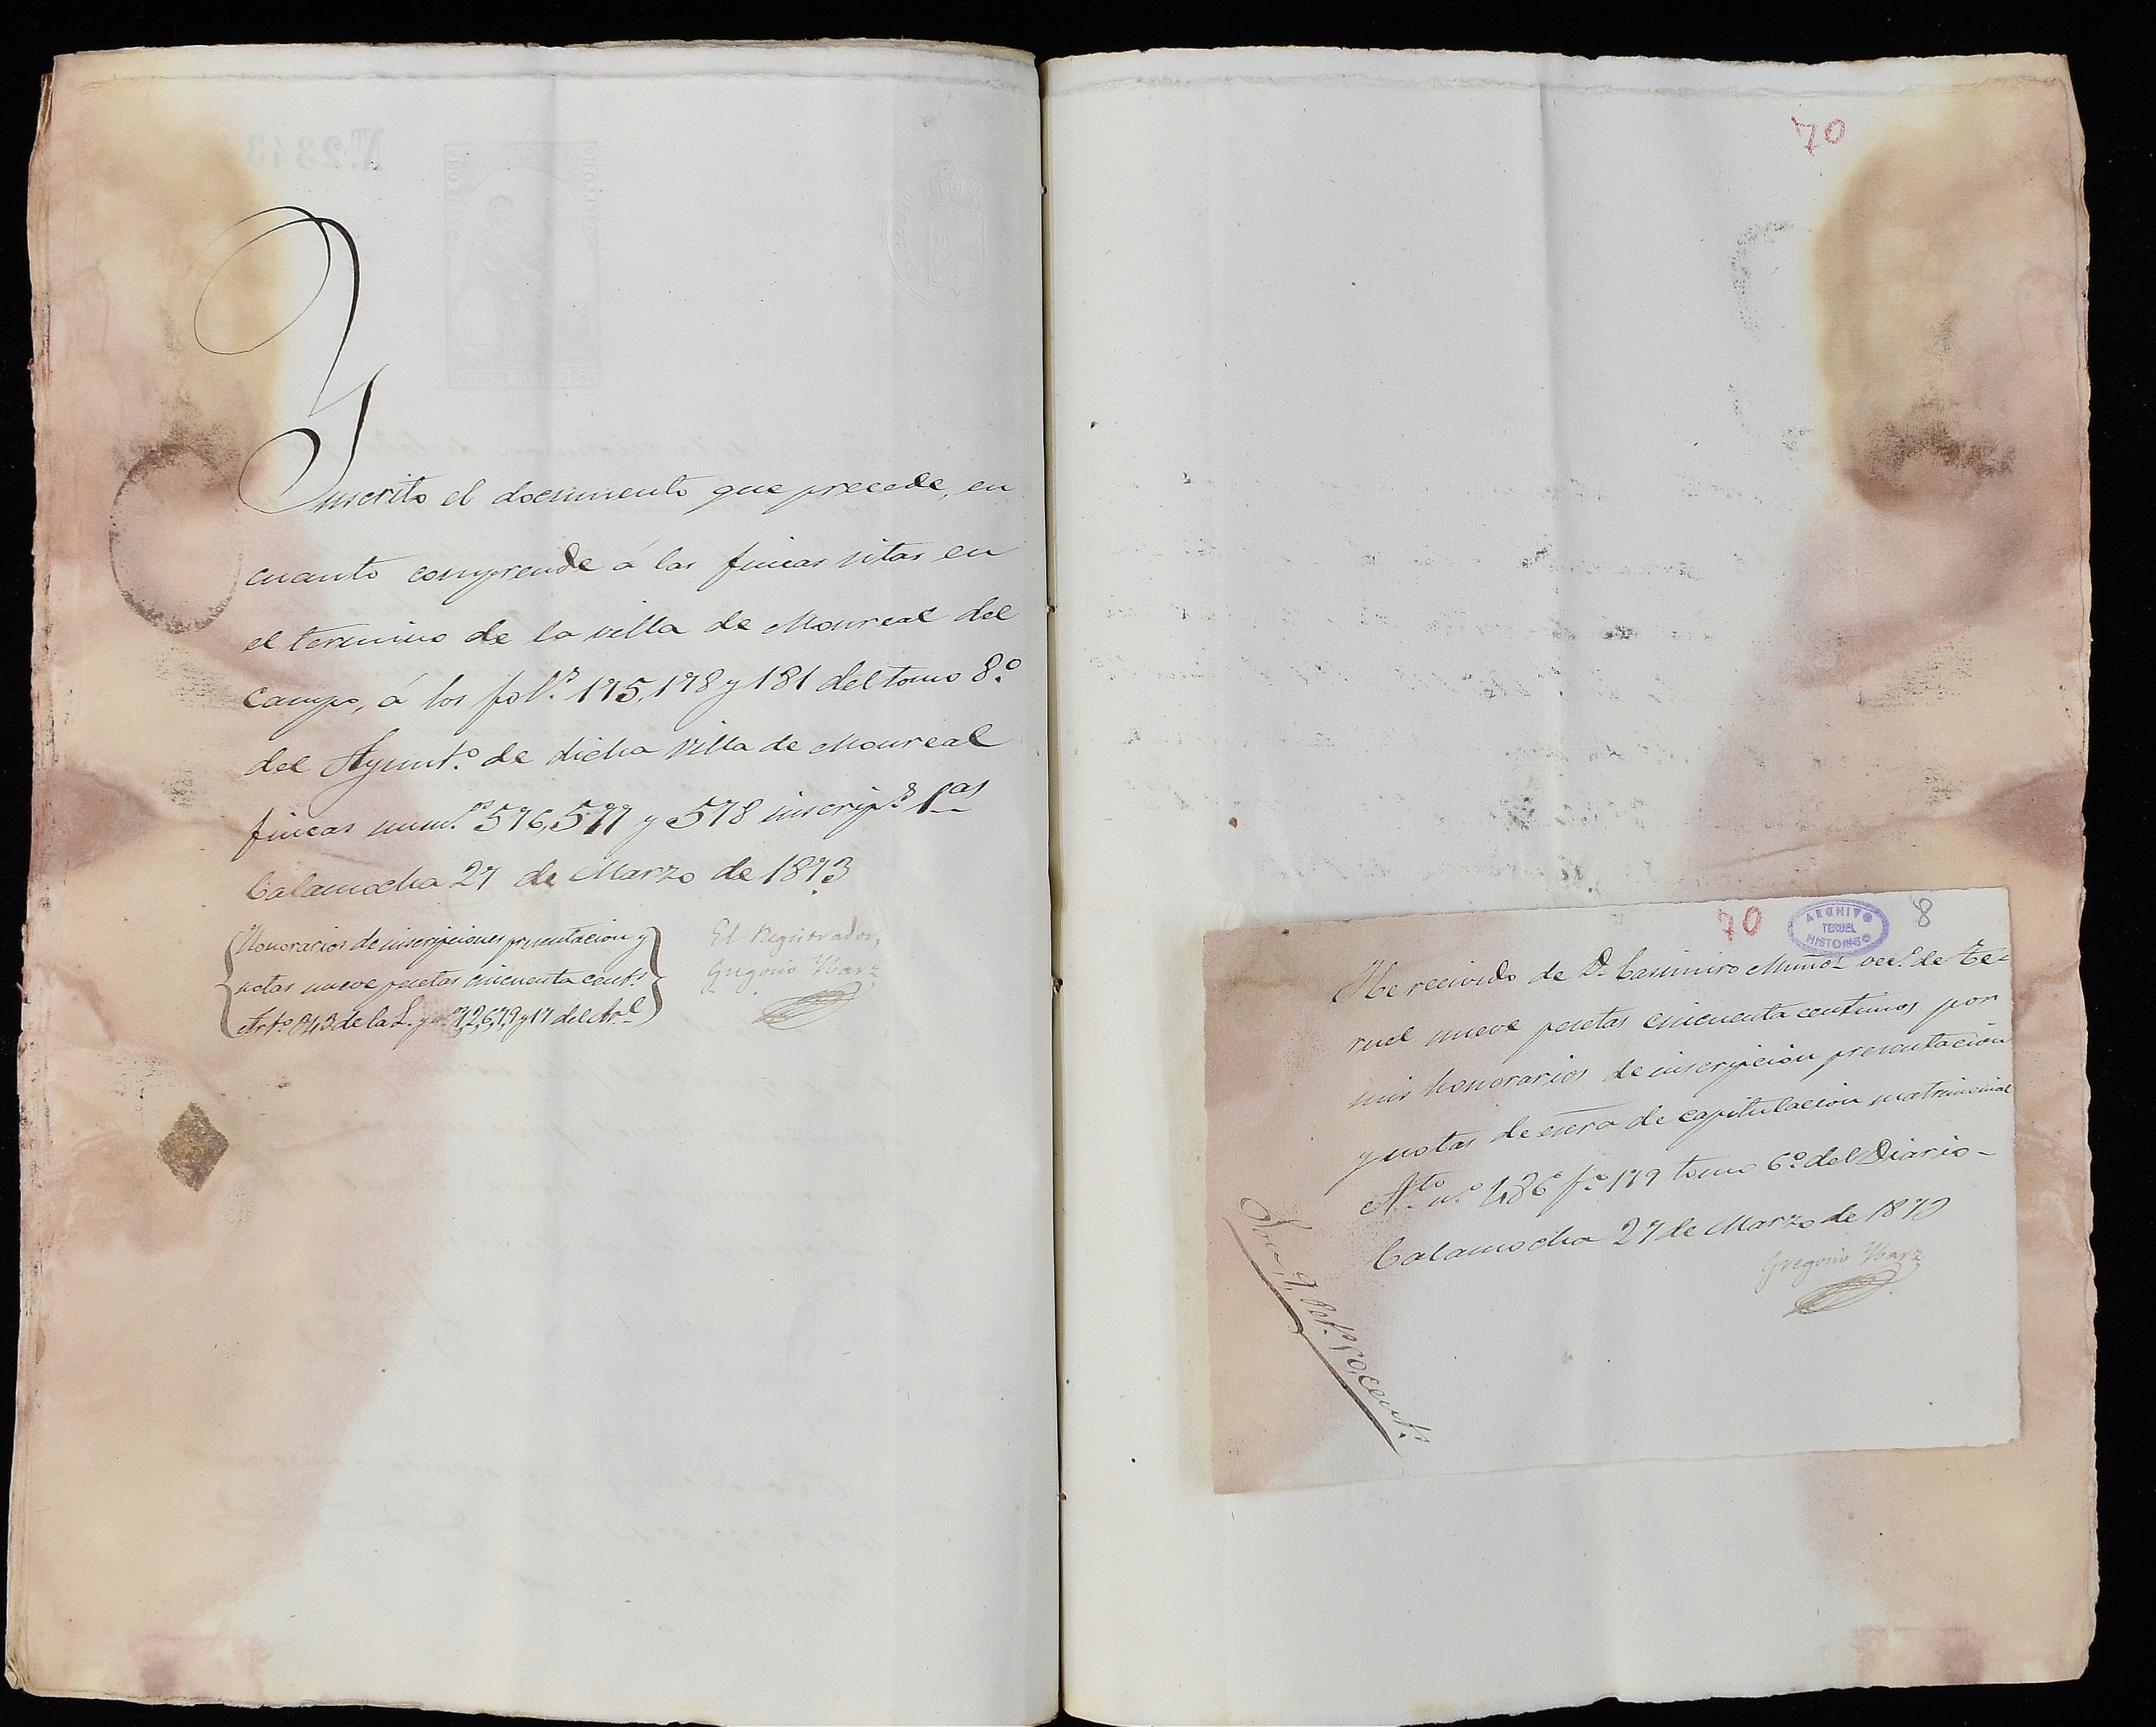 Inscrito el documento que precede, en
cuanto comprende á las fincas sitas en
el termino de la villa de Monreal del
campo, á los fol.s 175, 178 y 181 del tomo 8.o
del Ayunt.o de dicha villa de Monreal
fincas num.s 576, 577 y 578 inscrip.s 1.as
Calamocha 27 de Marzo de 1873
Honorarios de inscripciones presentacion y
notas nueve pesetas cincuenta cent.s
Art.o 343 de la L. y n.os 1, 2, 6, 7, 9 y 17 del Ar.l
El Registrador,
Gregorio Ybarz
70
70
ARCHIVO
TERUEL
HISTORICO
8
He recivido de D. Casimiro Muñoz vec.o de Te-
ruel nueve pesetas cincuenta centimos por
mis honorarios de inscripcion presentacion
y notas de escra de capitulacion matrimonial
A.to n.o 486 f.o 179 tomo 6.o del Diario-
Calamocha 27 de Marzo de 1873
Gregorio Ybarz
Son, 9, Pet.s 50, cent.s